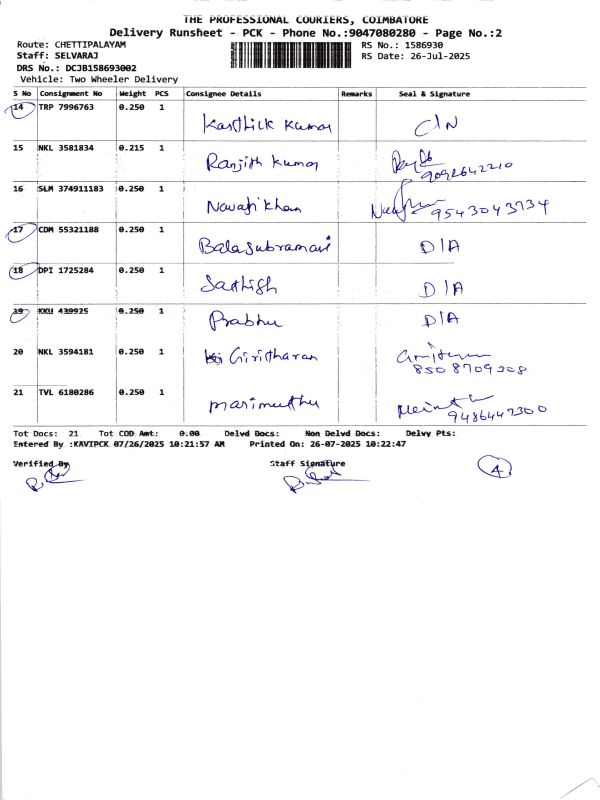 THE PROFESSIONAL COURIERS, COIMBATORE
Delivery Runsheet - PCK - Phone No.:9047080280 - Page No.:2
Route: CHETTIPALAYAM RS No.: 1586930
Staff: SELVARAJ RS Date: 26-Jul-2025
DRS No.: DCJB158693002
Vehicle: Two Wheeler Delivery
S No Consignment No Weight PCS Consignee Details Remarks Seal & Signature
14 TRP 7996763 0.250 1 Karthick Kumar C/N
15 NKL 3581834 0.215 1 Ranjith Kumar
16 SLM 374911183 0.250 1 Navafikhan 9543043734
17 CDM 55321188 0.250 1 Balasubramani D/A
18 DPI 1725284 0.250 1 Sathish D/A
19 KKU 439925 0.250 1 Prabhu D/A
20 NKL 3594181 0.250 1 Giritharan 8508709308
21 TVL 6180286 0.250 1 marimuthu 9486447300
Tot Docs: 21 Tot COD Amt: 0.00 Delvd Docs: Non Delvd Docs: Delvy Pts:
Entered By :KAVIPCK 07/26/2025 10:21:57 AM Printed On: 26-07-2025 10:22:47
Verified By Staff Signature 4